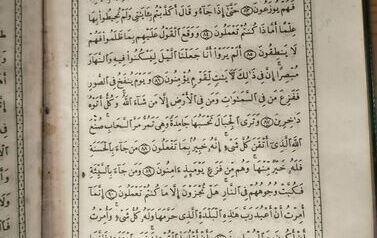 فَهُمْ يُوزَعُونَ ﴿٨٣﴾ حَتَّىٰٓ إِذَا جَآءُو قَالَ أَكَذَّبْتُم بِـَٔايَٰتِى وَلَمْ تُحِيطُوا۟ بِهَا
عِلْمًا أَمَّاذَا كُنتُمْ تَعْمَلُونَ ﴿٨٤﴾ وَوَقَعَ ٱلْقَوْلُ عَلَيْهِم بِمَا ظَلَمُوا۟ فَهُمْ
لَا يَنطِقُونَ ﴿٨٥﴾ أَلَمْ يَرَوْا۟ أَنَّا جَعَلْنَا ٱلَّيْلَ لِيَسْكُنُوا۟ فِيهِ وَٱلنَّهَارَ
مُبْصِرًا إِنَّ فِى ذَٰلِكَ لَـَٔايَٰتٍ لِّقَوْمٍ يُؤْمِنُونَ ﴿٨٦﴾ وَيَوْمَ يُنفَخُ فِى ٱلصُّورِ
فَفَزِعَ مَن فِى ٱلسَّمَٰوَٰتِ وَمَن فِى ٱلْأَرْضِ إِلَّا مَن شَآءَ ٱللَّهُ وَكُلٌّ أَتَوْهُ
دَٰخِرِينَ ﴿٨٧﴾ وَتَرَى ٱلْجِبَالَ تَحْسَبُهَا جَامِدَةً وَهِىَ تَمُرُّ مَرَّ ٱلسَّحَابِ صُنْعَ
ٱللَّهِ ٱلَّذِىٓ أَتْقَنَ كُلَّ شَىْءٍ إِنَّهُۥ خَبِيرٌۢ بِمَا تَفْعَلُونَ ﴿٨٨﴾ مَن جَآءَ بِٱلْحَسَنَةِ
فَلَهُۥ خَيْرٌ مِّنْهَا وَهُم مِّن فَزَعٍ يَوْمَئِذٍ ءَامِنُونَ ﴿٨٩﴾ وَمَن جَآءَ بِٱلسَّيِّئَةِ
فَكُبَّتْ وُجُوهُهُمْ فِى ٱلنَّارِ هَلْ تُجْزَوْنَ إِلَّا مَا كُنتُمْ تَعْمَلُونَ ﴿٩٠﴾ إِنَّمَآ
أُمِرْتُ أَنْ أَعْبُدَ رَبَّ هَٰذِهِ ٱلْبَلْدَةِ ٱلَّذِى حَرَّمَهَا وَلَهُۥ كُلُّ شَىْءٍ وَأُمِرْتُ